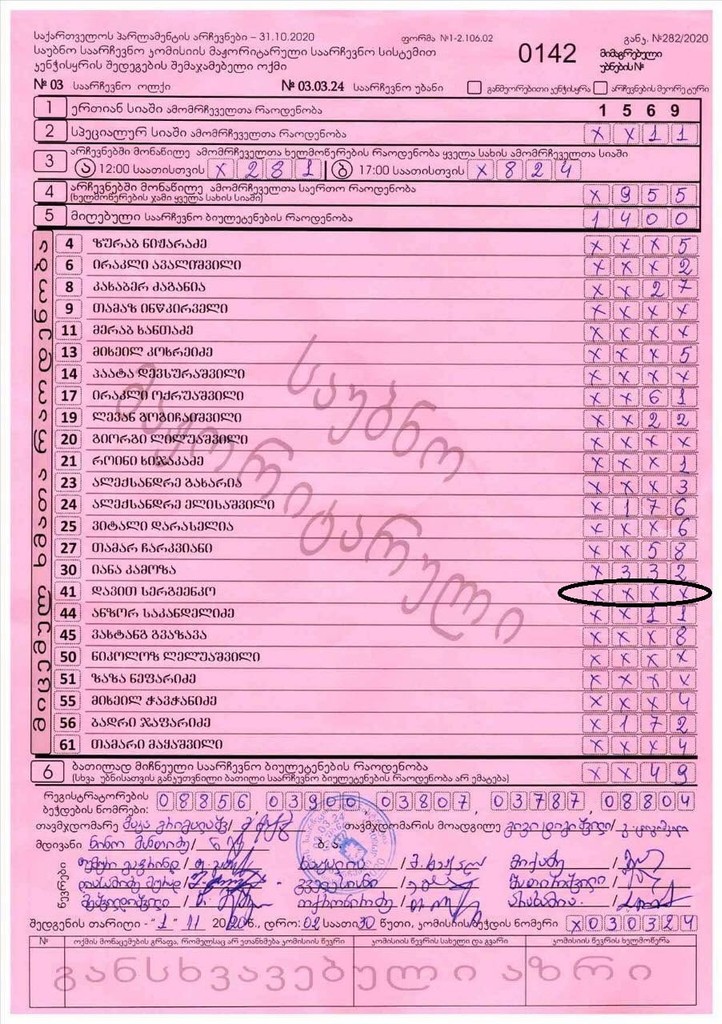 საქართველოს პარლამენტის არჩევნები – 31.10.2020 ფორმა №1-2.106.02 განკ. №282/2020
საუბნო საარჩევნო კომისიის მაჟორიტარული საარჩევნო სისტემით
კენჭისყრის შედეგების შემაჯამებელი ოქმი 0142 მიმაგრებული უბნების №
№ 03 საარჩევნო ოლქი № 03.03.24 საარჩევნო უბანი განმეორებითი კენჭისყრა არჩევნების მეორე ტური
1 ერთიან სიაში ამომრჩეველთა რაოდენობა 1 5 6 9
2 სპეციალურ სიაში ამომრჩეველთა რაოდენობა x x 1 1
3 არჩევნებში მონაწილე ამომრჩეველთა ხელმოწერების რაოდენობა ყველა სახის ამომრჩეველთა სიაში
ა 12:00 საათისთვის x 2 8 1 ბ 17:00 საათისთვის x 8 2 4
4 არჩევნებში მონაწილე ამომრჩეველთა საერთო რაოდენობა x 9 5 5
(ხელმოწერების ჯამი ყველა სახის სიაში)
5 მიღებული საარჩევნო ბიულეტენების რაოდენობა 1 4 0 0
მიცემულ ხმათა რაოდენობა
4 ზურაბ ნიჟარაძე x x x 5
6 ირაკლი ავალიშვილი x x x 2
8 კახაბერ ძაგანია x x 2 7
9 თამაზ ინწკირველი x x x x
11 მერაბ ხანთაძე x x x x
13 მიხეილ კოხრეიძე x x x 5
14 პაატა დევსურაშვილი x x x x
17 ირაკლი ოქრუაშვილი x x 6 1
19 ლევან გოგიჩაიშვილი x x 2 2
20 გიორგი ლილუაშვილი x x x x
21 როინი ხიჯაკაძე x x x 1
23 ალექსანდრე გახარია x x x 3
24 ალექსანდრე ელისაშვილი x 1 7 6
25 ვიტალი დარასელია x x x 6
27 თამარ ჩარკვიანი x x 5 8
30 იანა კამოზა x 3 3 2
41 დავით სერგეენკო x x x x
44 ანზორ საკანდელიძე x x 1 1
45 ვახტანგ გვაზავა x x x 8
50 ნიკოლოზ ლელუაშვილი x x x x
51 ზაზა ნეფარიძე x x x x
55 მიხეილ ჭავჭანიძე x x x 4
56 ბადრი ჯაფარიძე x 1 7 2
61 თამარი მაყაშვილი x x x 4
საუბნო
მაჟორიტარული
6 ბათილად მიჩნეული საარჩევნო ბიულეტენების რაოდენობა x x 4 9
(სხვა უბნისათვის განკუთვნილი ბათილი საარჩევნო ბიულეტენების რაოდენობა არ ემატება)
რეგისტრატორების ბეჭდების ნომრები: 08856 03900 03807, 03787, 08804
თავმჯდომარე თავმჯდომარის მოადგილე
მდივანი ნინო ბ. ა.
წევრები
შედგენის თარიღი - "1" 11 2020წ., დრო: 02 საათი 30 წუთი, კომისიის ბეჭდის ნომერი x030324
№ ოქმის მონაცემების გრაფა, რომელსაც არ ეთანხმება კომისიის წევრი კომისიის წევრის სახელი და გვარი კომისიის წევრის ხელმოწერა
განსხვავებული აზრი